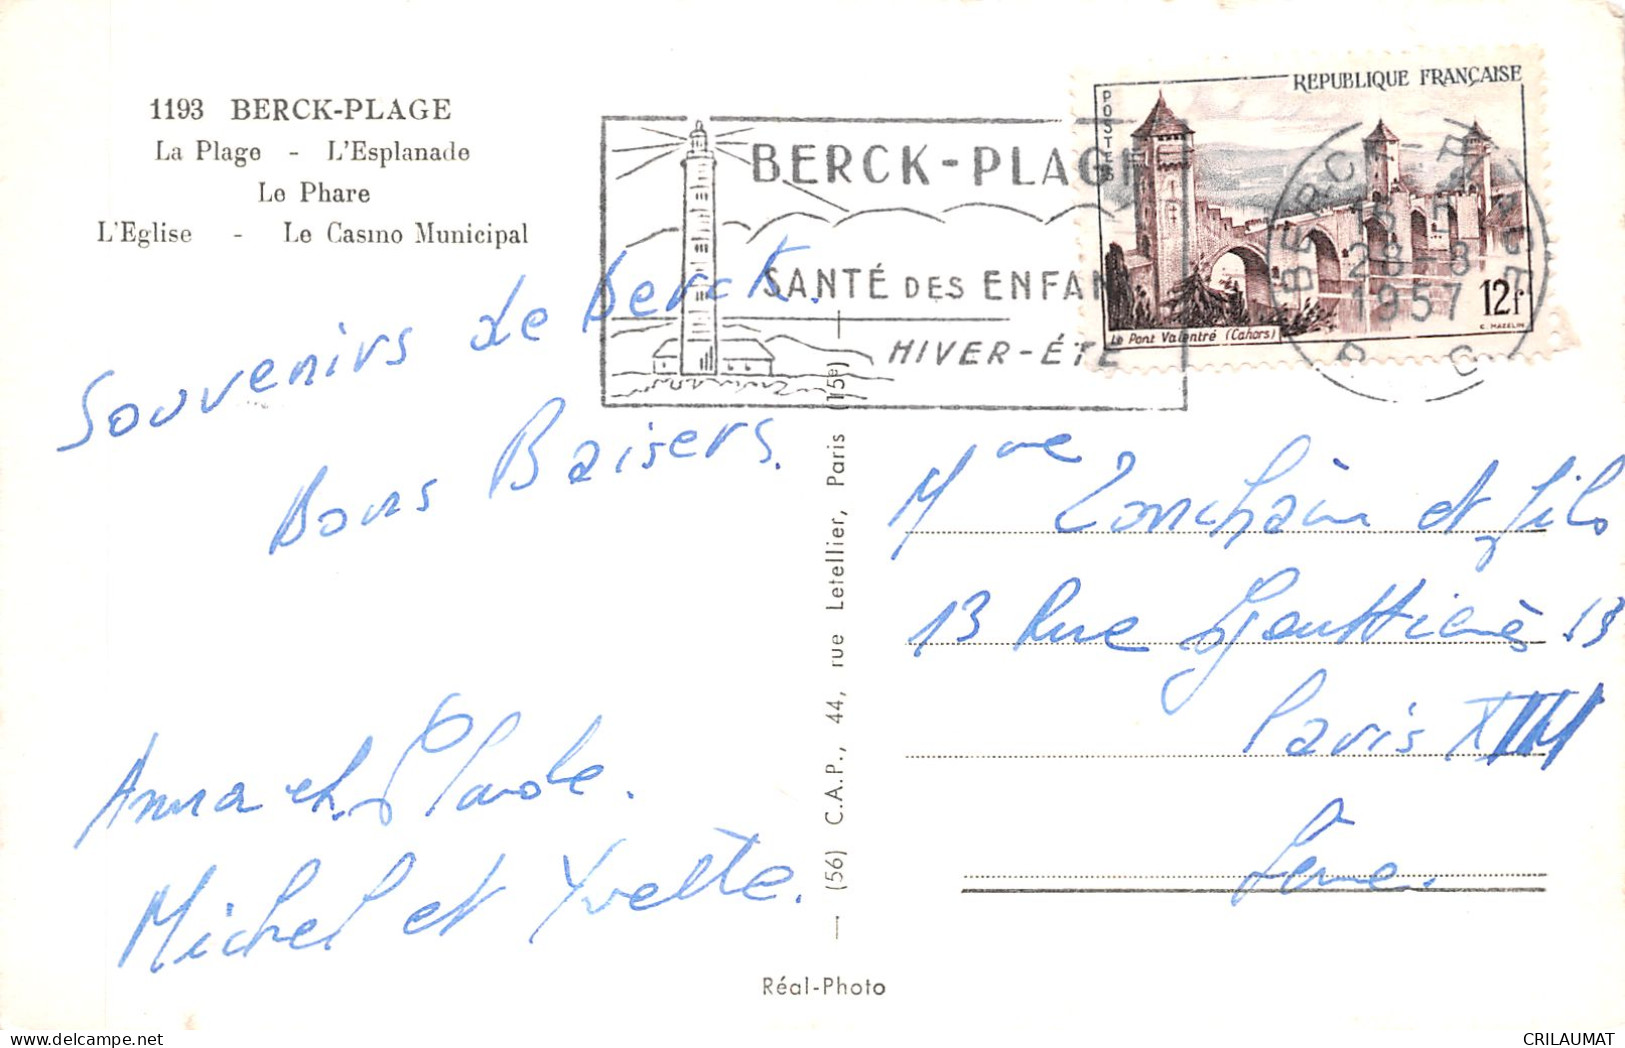 1193 BERCK-PLAGE
La Plage - L'Esplanade
Le Phare
L'Eglise - Le Casino Municipal
BERCK-PLAGE
SANTÉ DES ENFAN
HIVER-ÉTÉ
REPUBLIQUE FRANÇAISE
POSTES
12f
Le Pont Valentré (Cahors)
C. MAZELIN
28-8
1957
P C
Souvenirs de Berck.
Bons Baisers.
Anna et Paule.
Michel et Yvette.
(56) C.A.P., 44, rue Letellier, Paris (15e)
Mme et fils
13 Rue 13
Paris XIII
Seine.
Réal-Photo
CRILAUMAT